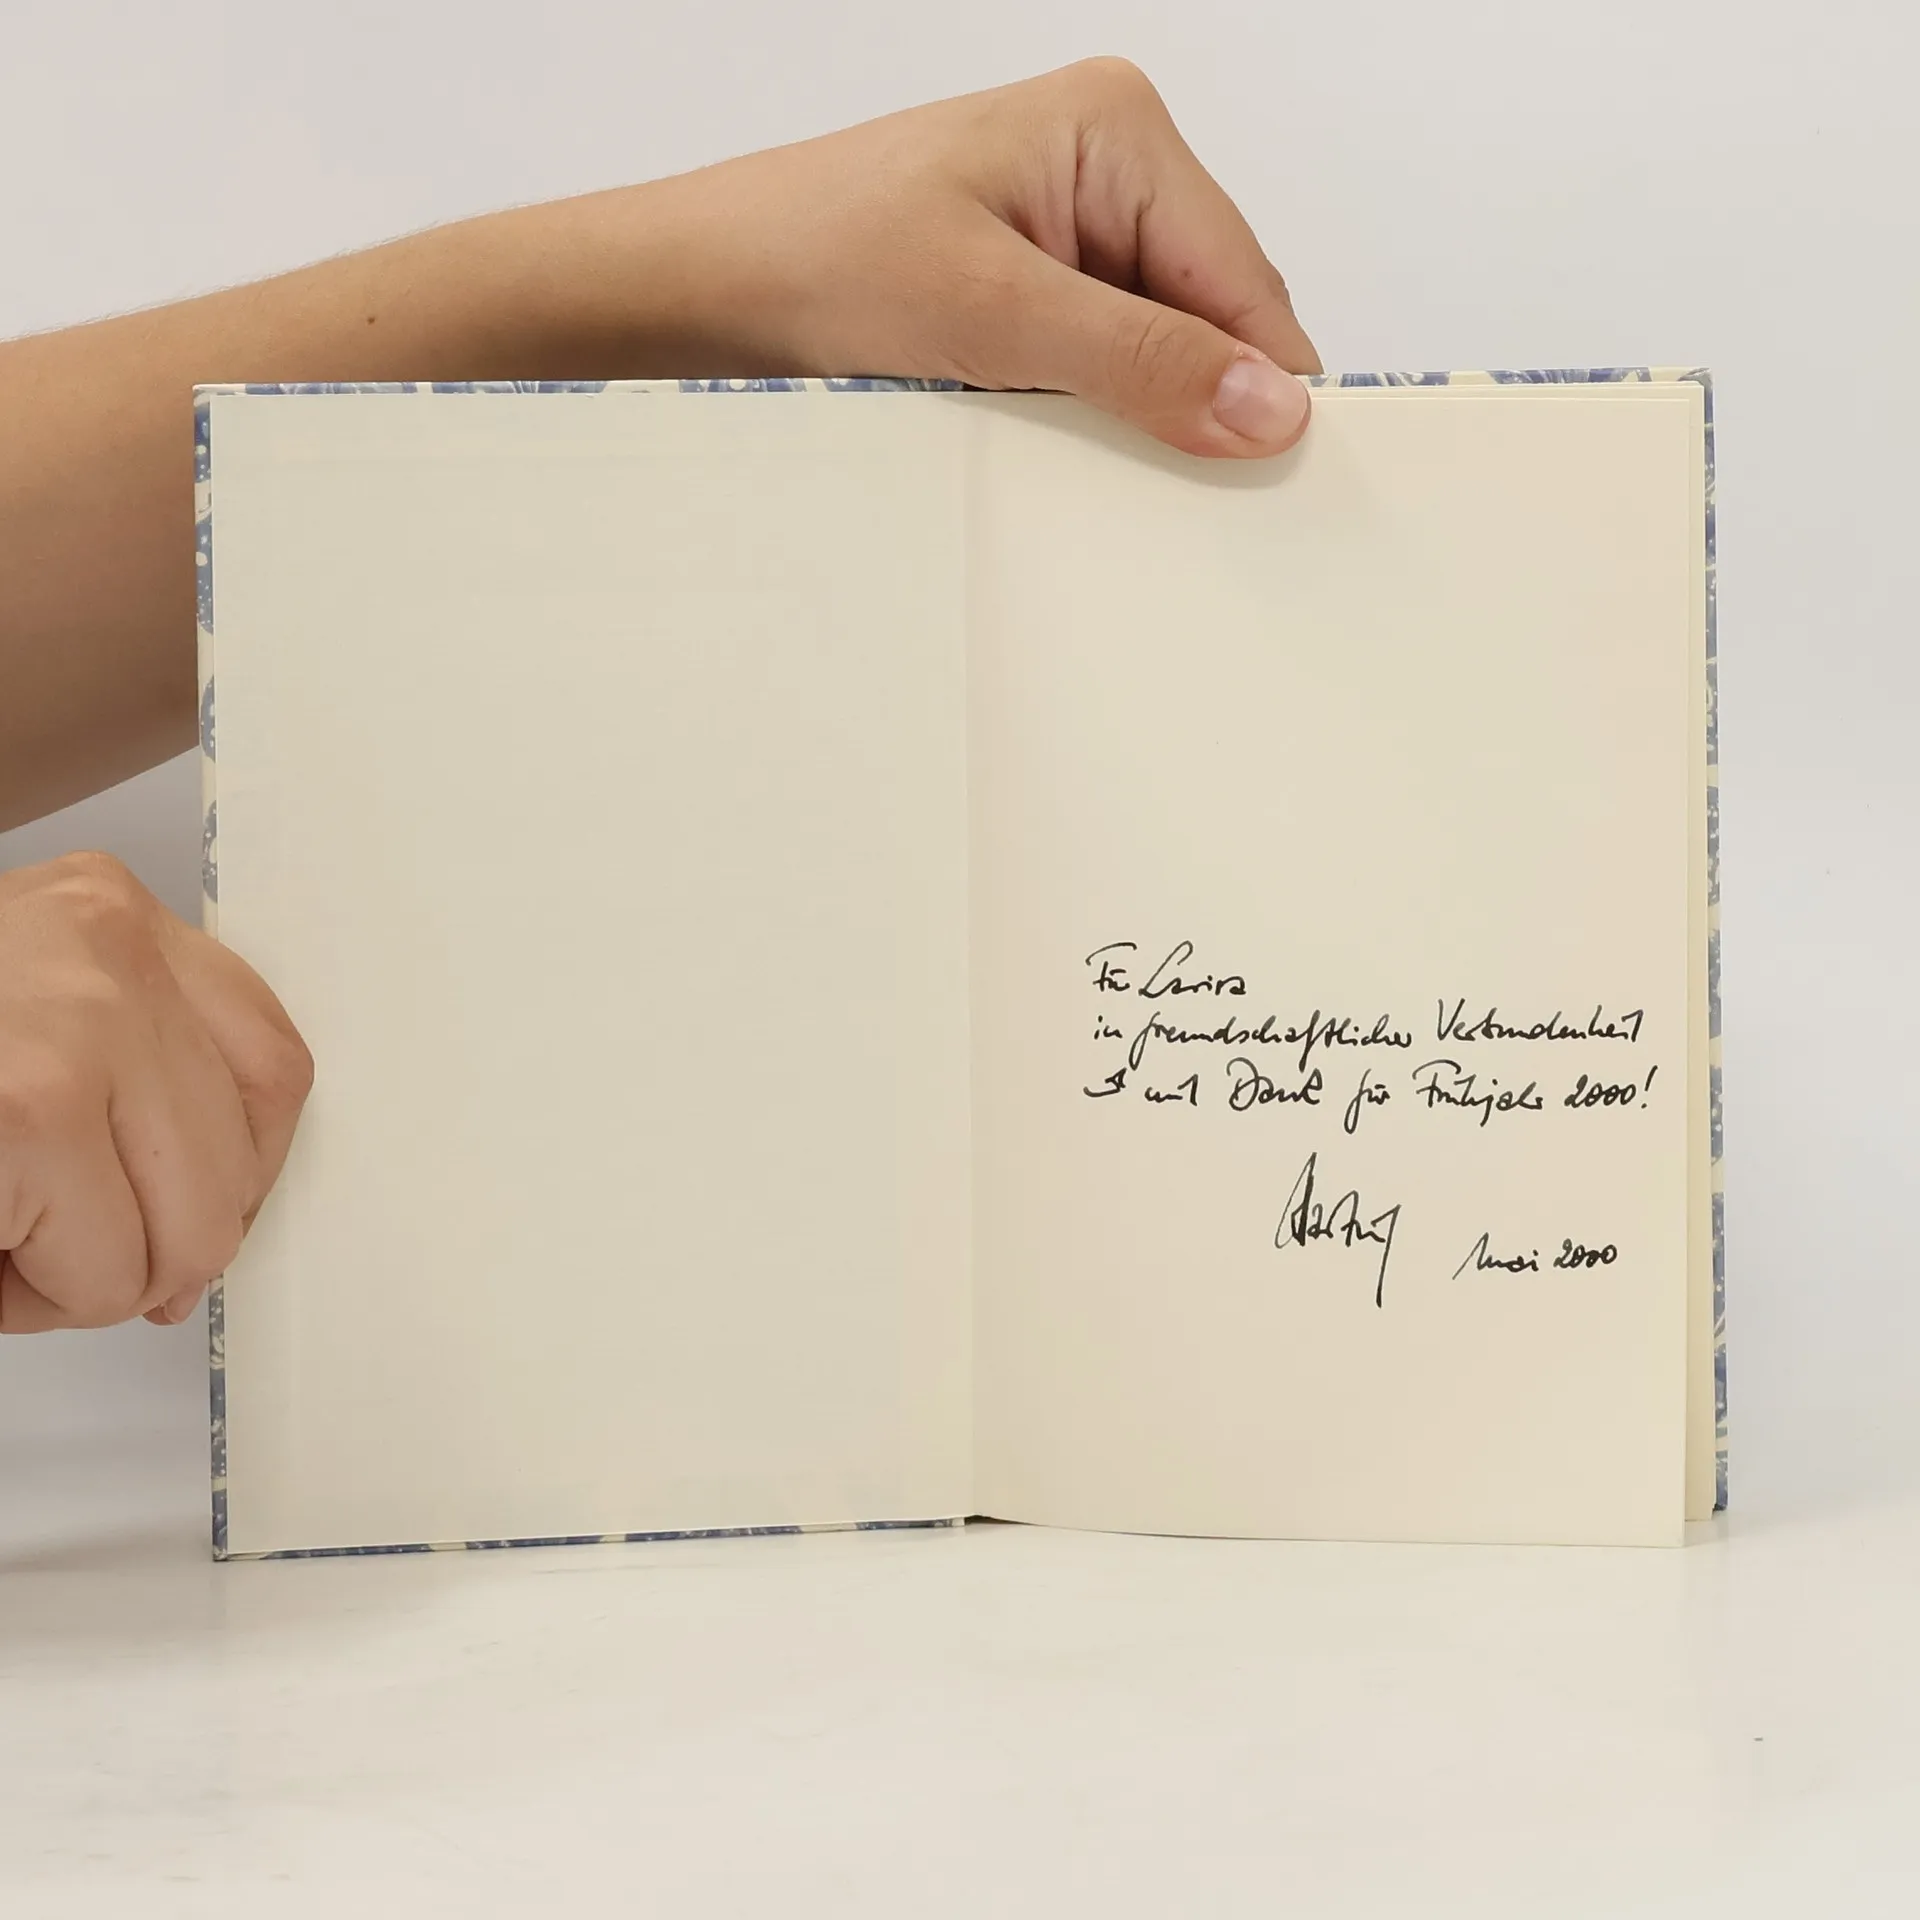 Für Larissa
in freundschaftlicher Verbundenheit
mit Dank für Frühjahr 2000!
Hartmut
Mai 2000